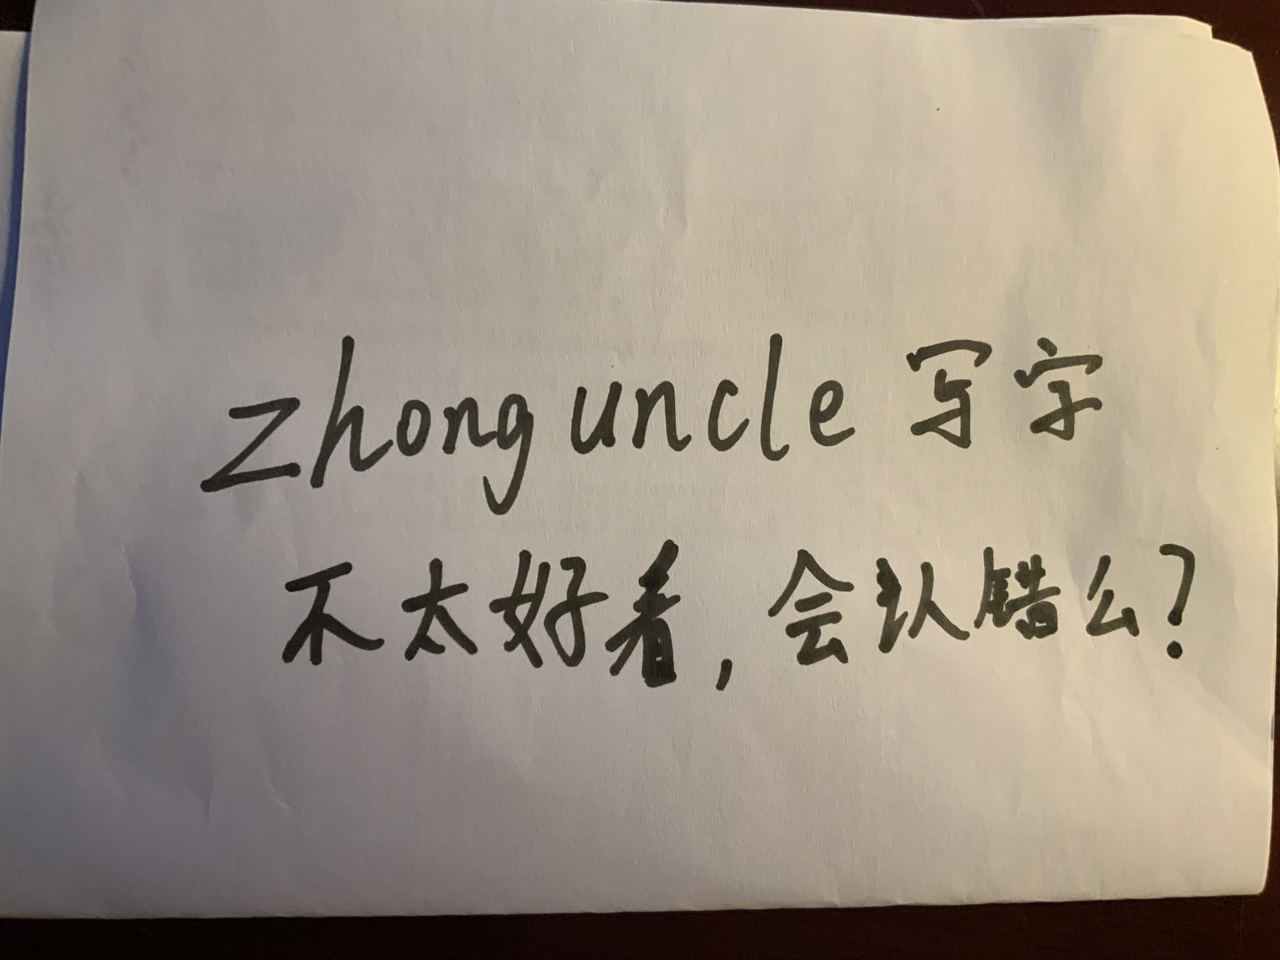 zhong uncle 写字
不太好看，会认错么？